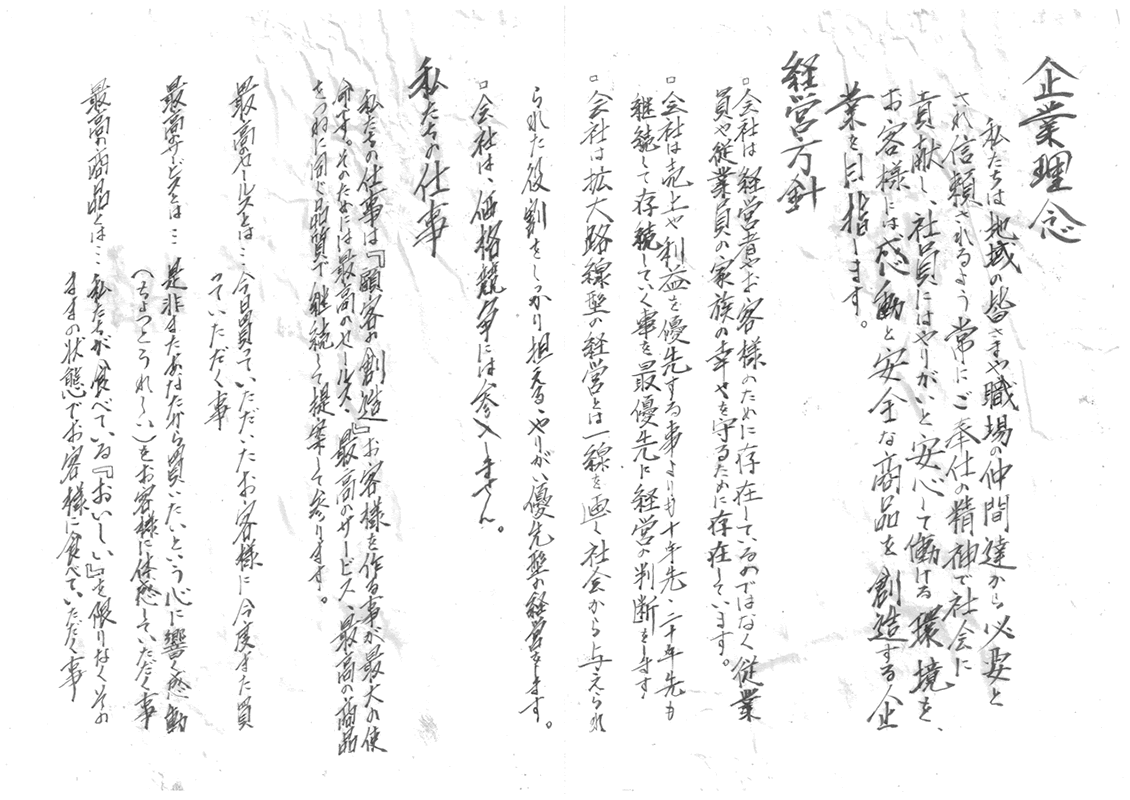 企業理念
私たちは地域の皆さまや職場の仲間達から必要と
され信頼されるよう常にご奉仕の精神で社会に
貢献し、社員にはやりがいと安心して働ける環境を、
お客様には感動と安全な商品を創造する企
業を目指します。
経営方針
▫会社は経営者やお客様のために存在しているのではなく従業
員や従業員の家族の幸せを守るために存在しています。
▫会社は売上や利益を優先する事よりも十年先・二十年先も
継続して存続していく事を最優先に経営の判断をします
▫会社は拡大路線型の経営とは一線を画し社会から与えられ
られた役割をしっかり担える、やりがい優先型の経営をします。
▫会社は、価格競争には参入しません。
私たちの仕事
私たちの仕事は『顧客の創造』お客様を作る事が最大の使
命です。そのためには最高のセールス、最高のサービス、最高の商品
をつねに同じ品質で継続して提案して参ります。
最高のセールスとは…今日買っていただいたお客様に今度また買
っていただく事
最高サービスとは… 是非またあなたから買いたいという心に響く感動
(ちょっとうれしい)をお客様に体感していただく事
最高の商品とは…私たちが食べている『おいしい』を限りなくその
ままの状態でお客様に食べていただく事